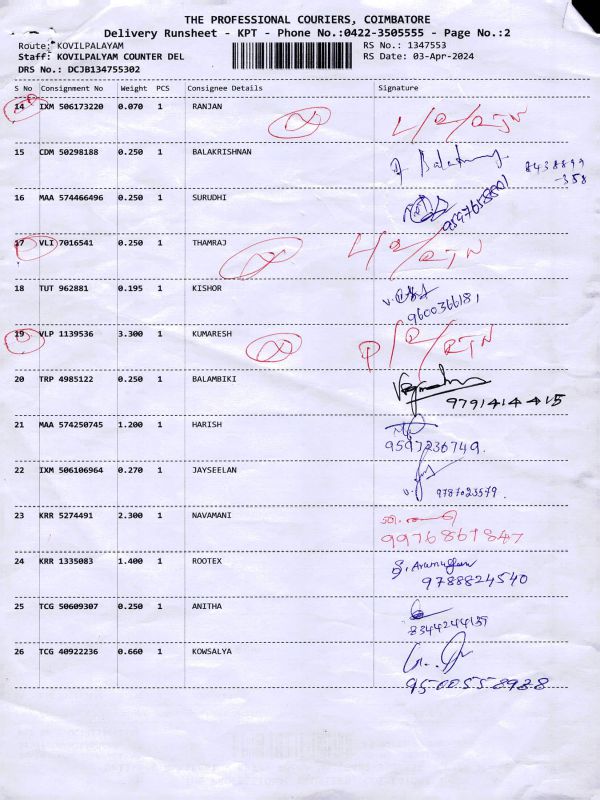 THE PROFESSIONAL COURIERS, COIMBATORE
Delivery Runsheet - KPT - Phone No.:0422-3505555 - Page No.:2
Route: KOVILPALAYAM RS No.: 1347553
Staff: KOVILPALYAM COUNTER DEL RS Date: 03-Apr-2024
DRS No.: DCJB134755302
S No Consignment No Weight PCS Consignee Details Signature
14 IXM 506173220 0.070 1 RANJAN
15 CDM 50298188 0.250 1 BALAKRISHNAN
8438899
-358
16 MAA 574466496 0.250 1 SURUDHI
17 VLI 7016541 0.250 1 THAMRAJ
18 TUT 962881 0.195 1 KISHOR
9600366181
19 VLP 1139536 3.300 1 KUMARESH
20 TRP 4985122 0.250 1 BALAMBIKI
9791414415
21 MAA 574250745 1.200 1 HARISH
9597236749.
22 IXM 506106964 0.270 1 JAYSEELAN
9787023579.
23 KRR 5274491 2.300 1 NAVAMANI
9976867847
24 KRR 1335083 1.400 1 ROOTEX
9788824540
25 TCG 50609307 0.250 1 ANITHA
26 TCG 40922236 0.660 1 KOWSALYA
9500558988